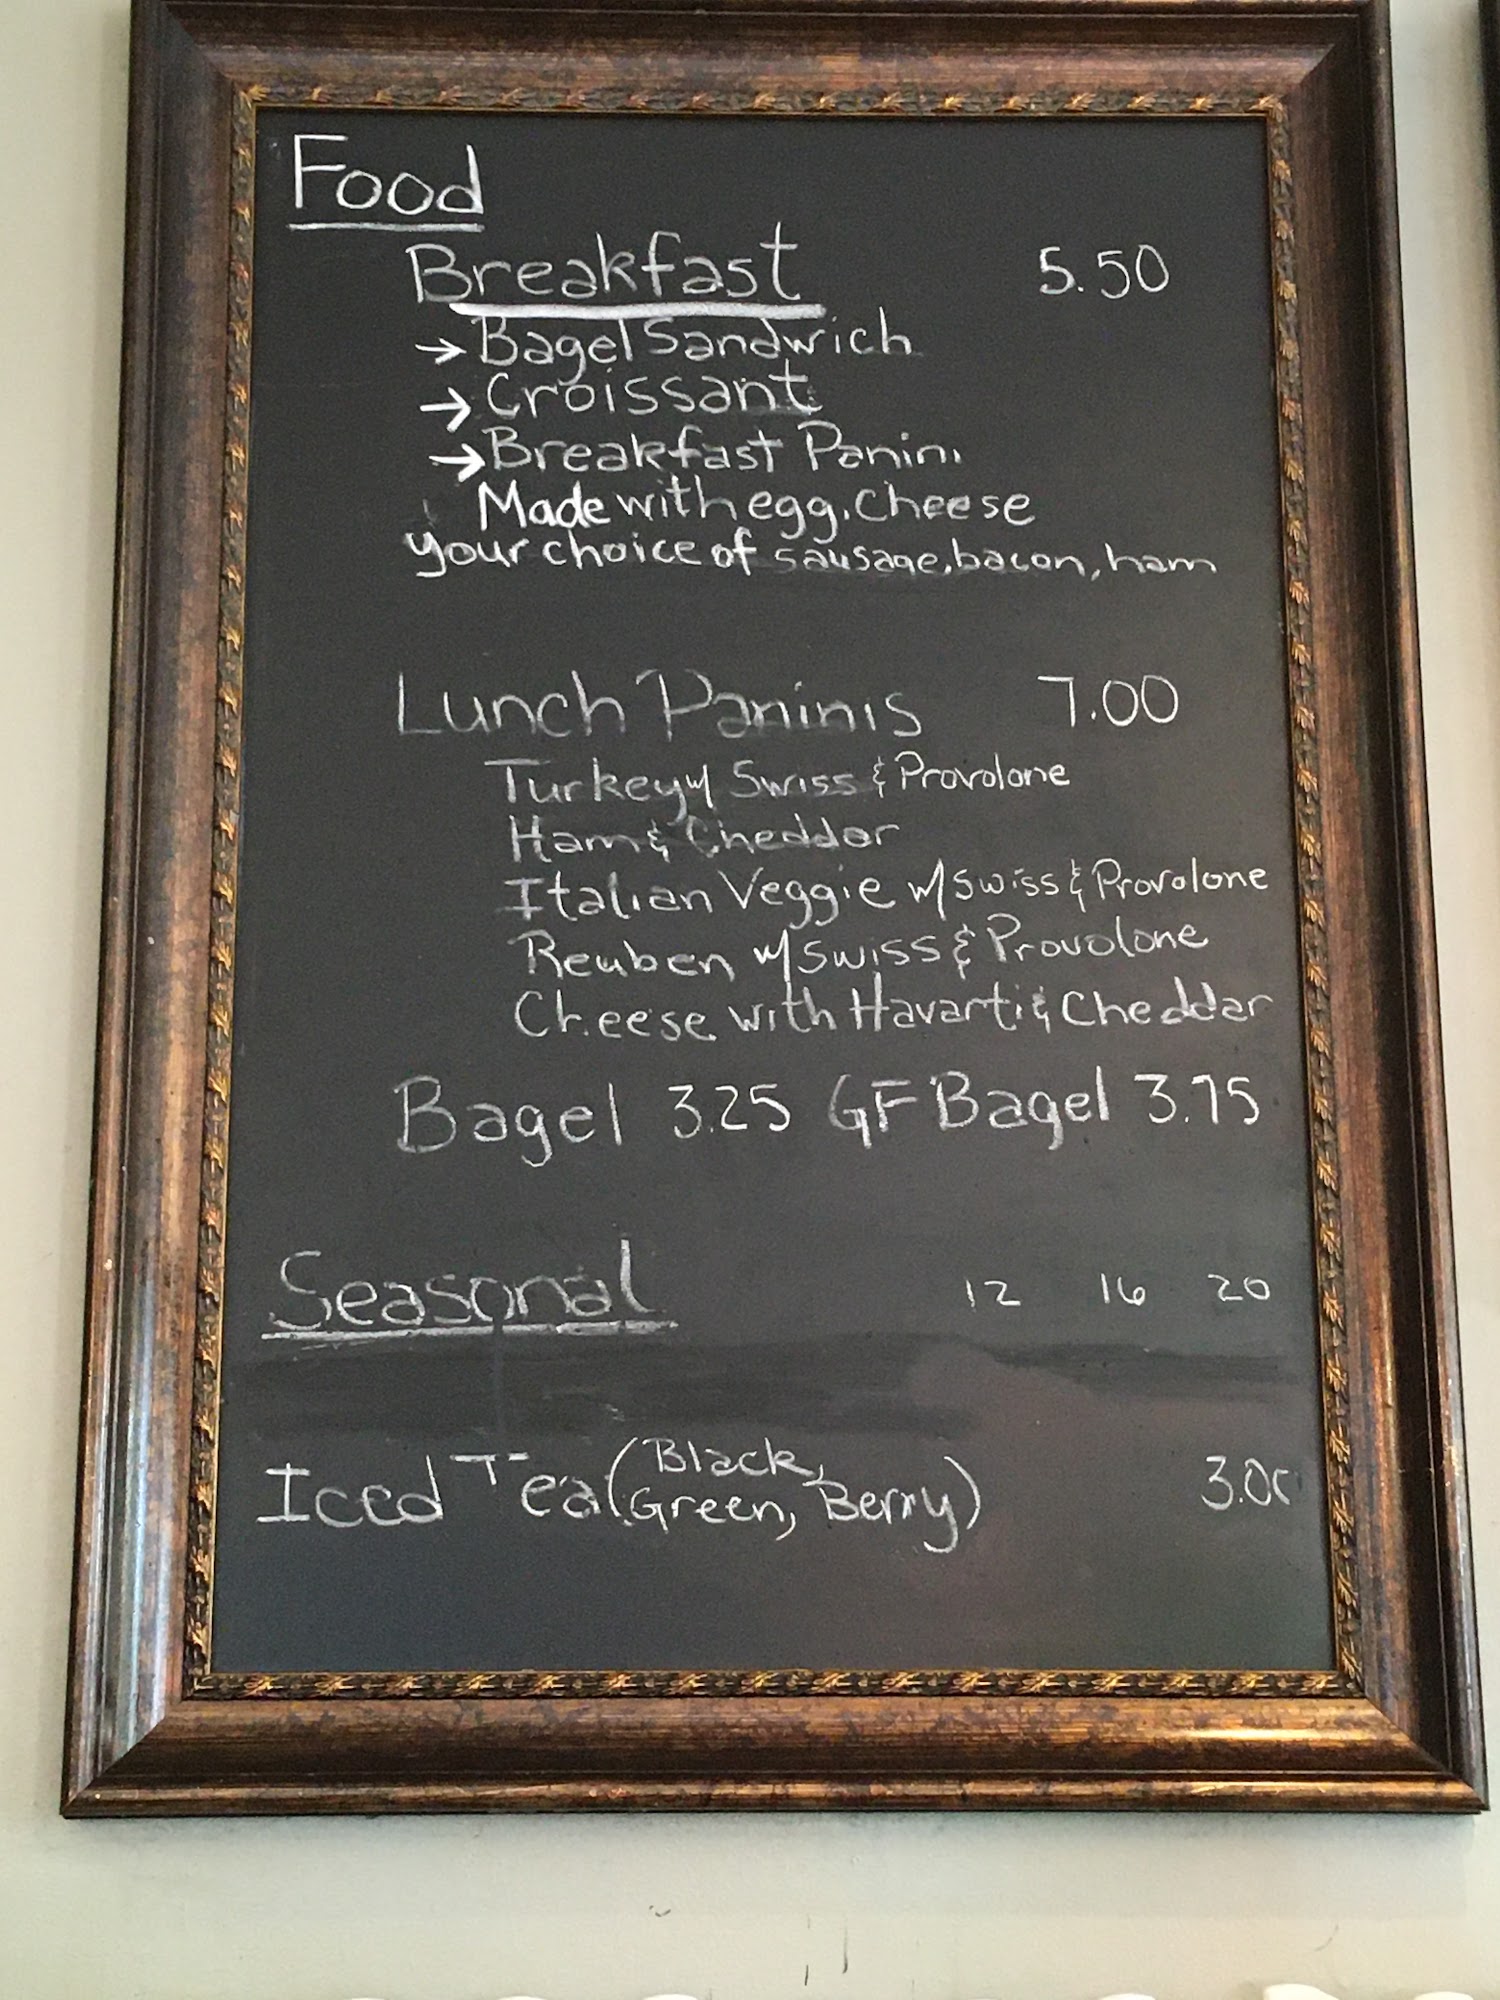 Food
Breakfast 5.50
→ Bagel Sandwich
→ Croissant
→ Breakfast Panini
Made with egg, cheese
your choice of sausage, bacon, ham
Lunch Paninis 7.00
Turkey w/ Swiss & Provolone
Ham & Cheddar
Italian Veggie w/ Swiss & Provolone
Reuben w/ Swiss & Provolone
Cheese with Havarti & Cheddar
Bagel 3.25 GF Bagel 3.75
Seasonal 12 16 20
Iced Tea (Black, Green, Berry) 3.00